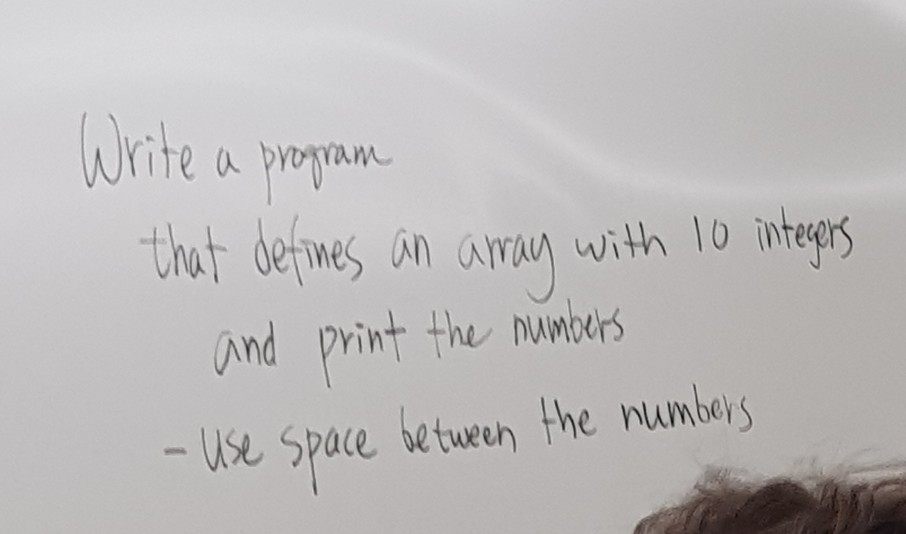 Write a program
that defines an array with 10 integers
and print the numbers
- Use space between the numbers